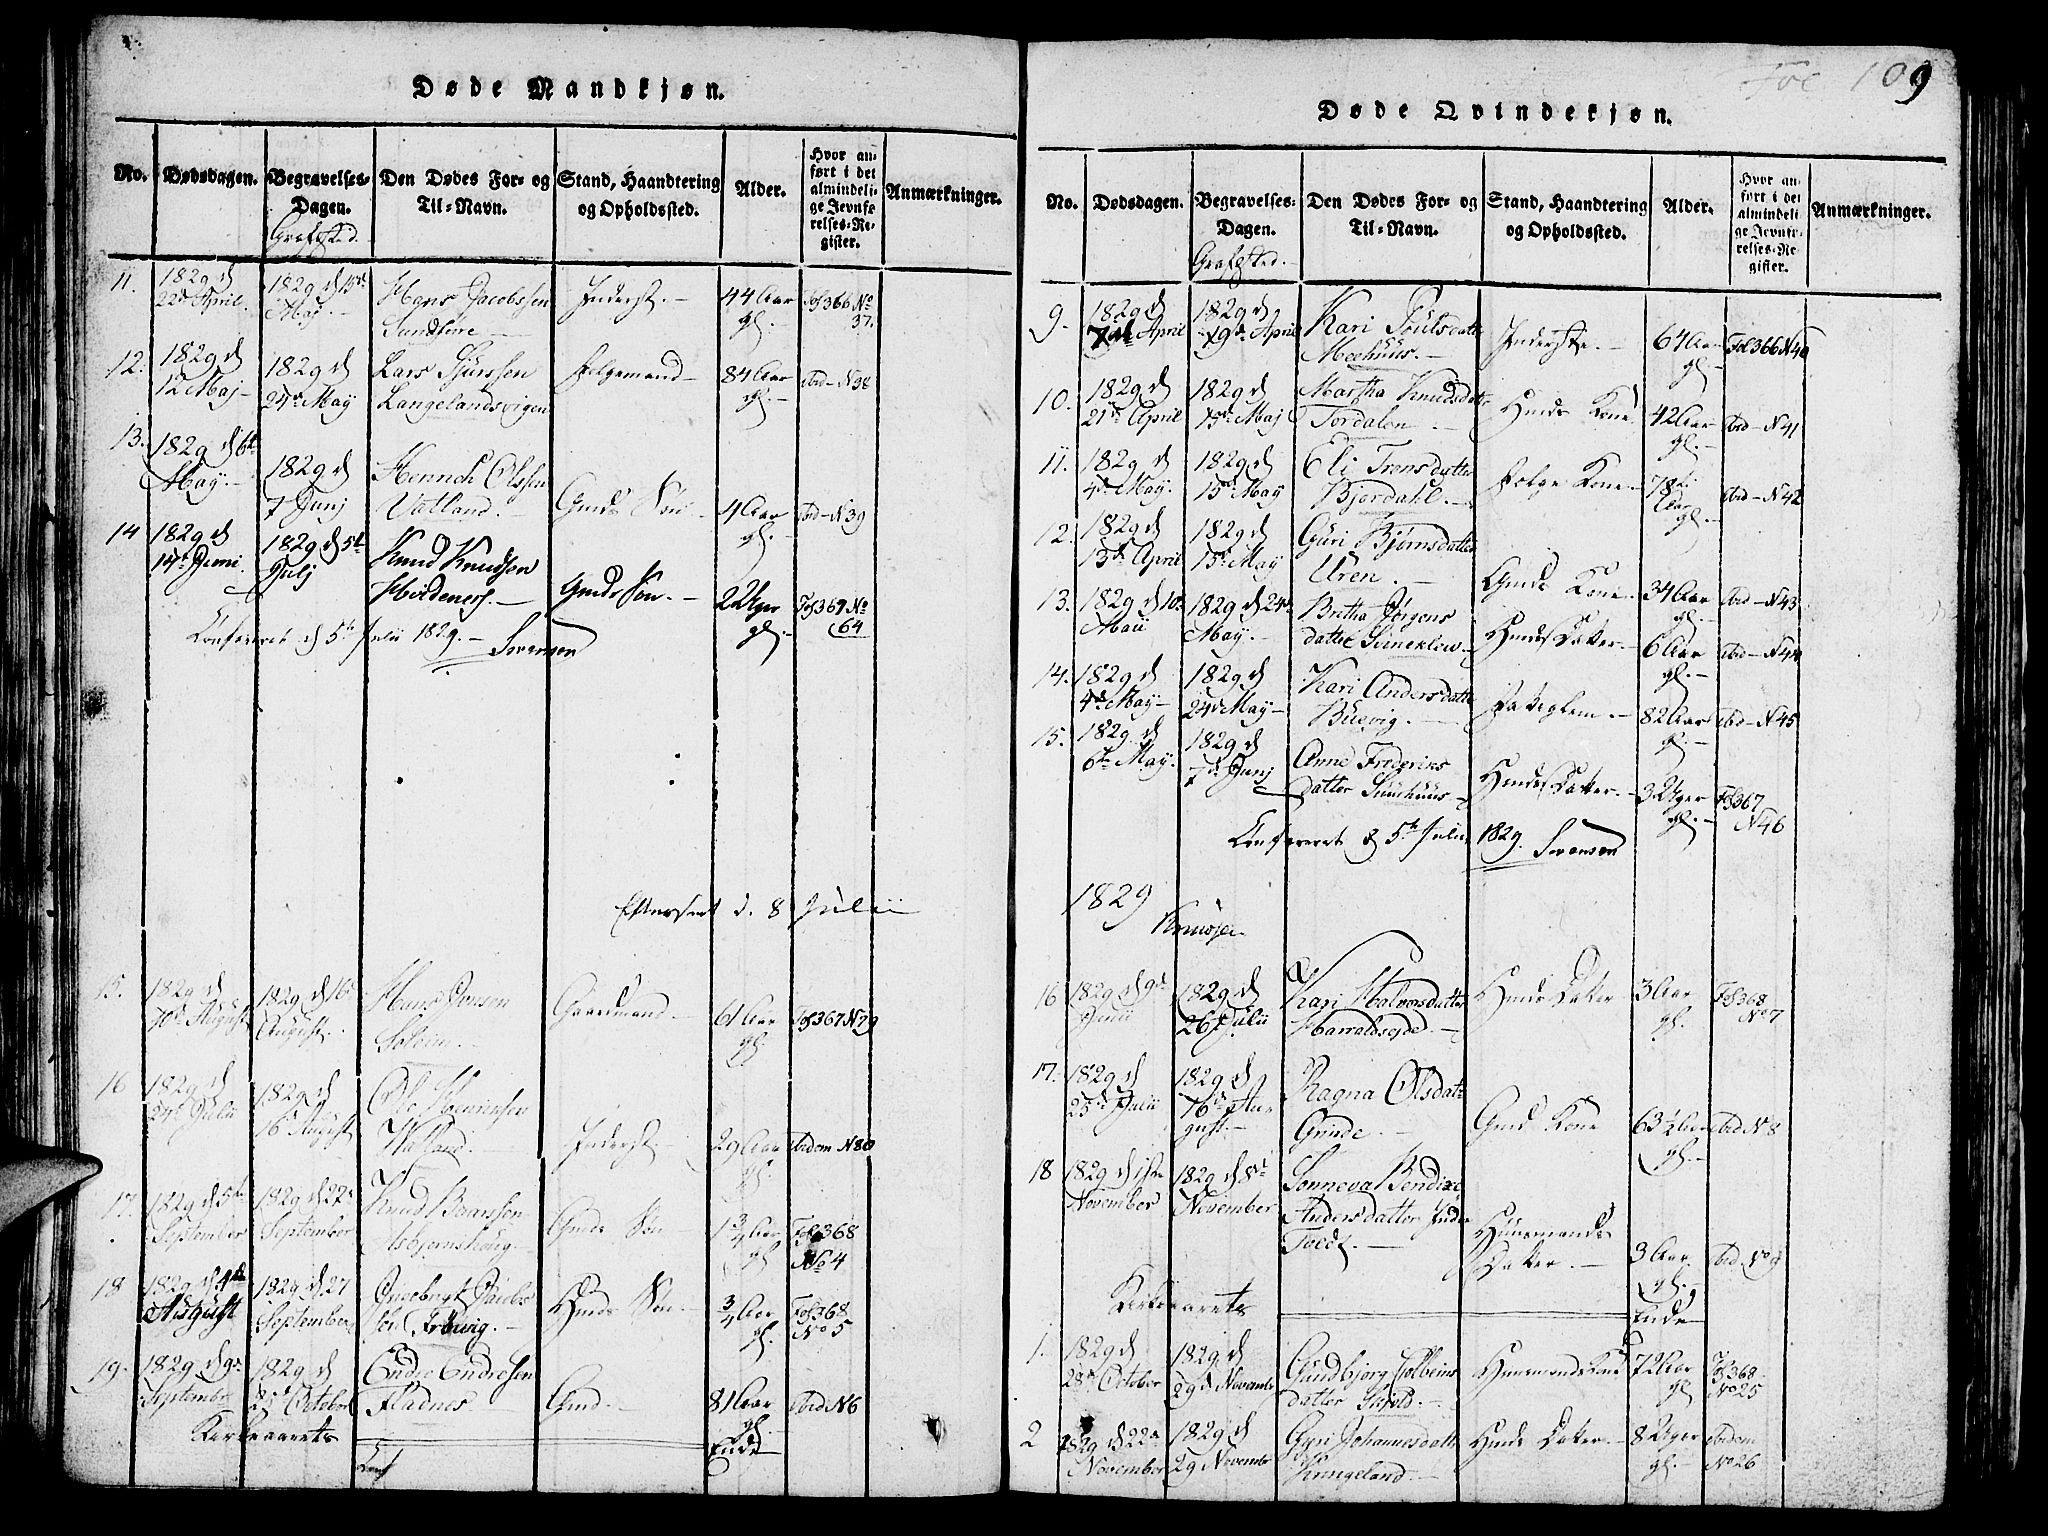 Døde Mandkjøn.
No.
Dødsdagen.
Begravelses-
Dagen.
Grafsted.
Den Dødes For- og
Til-Navn.
Stand, Haandtering
og Opholdssted.
Alder.
Hvor an-
ført i det
almindeli-
ge Jevnfø-
relses-Re-
gister.
Anmærkninger.
11.
1829 d
22de April.
1829 d 15de
Maj.
Hans Jacobssen
Sundføre
Inderst.
44 Aar
gl.
Fol 366 No
37.
12.
1829 d
12 Maj
1829 d
24de May
Lars Sjurssen
Langelandsvigen
Folgemand
84 Aar
gl.
Ibid - N 38
13.
1829 d 6te
May.
1829 d
7 Junj
Henrich Olssen
Vatland.
Gmds Søn
4 Aar
gl.
Ibid - N 39
14
1829 d
14de Juni.
1829 d 5te
Julj
Knud Knudsen
Gmds Søn.
2 Uger
gl.
Fol 367 No
64
Confereret d 5te Julii 1829. Sorenson
Efterseet d. 8 Julii
15.
1829 d
10de August
1829 d 16
August
Hans Jonsen
Soleim.
Gaardmand.
61 Aar
gl.
Fol 367 N 79
16
1829 d
24de Julii
1829 d
16 August
Ole Henrinsen
Watland.
Inderst.
29 Aar
gl.
Ibidem N 80
17.
1829 d 5te
September
1829 d 22
September
Knud Baarsen
Asbjørnshoug
Gmds Søn
1 3/4 Aar
gl
Fol 368
No 4
18
1829 d 4de
August
1829 d 27
September
Ingebrigt Jacobs
sen Frøvig.
Hmds Søn.
3/4 Aar
gl.
Fol 368
No 5
19.
1829 d 9de
Septembr
1829 d
October
Endre Endresen
Fladnes
Gmd.
81 Aar
gl.
Ibid N 6
Kirkeaarets
Ende
Fol 109
Døde Qvindekjøn.
No.
Dødsdagen.
Begravelses-
Dagen.
Grafsted.
Den Dødes For- og
Til-Navn.
Stand, Haandtering
og Opholdssted.
Alder.
Hvor an-
ført i det
almindeli-
ge Jevnfø-
relses-Re-
gister.
Anmærkninger.
9.
1829 d
7de April
1829 d
19de April
Kari Poulsdatter
Meehuus.
Inderste.
64 Aar
gl.
Fol 366 N 40
10.
1829 d
21de April
1829 d
15de Maj
Martha Knudsdatter
Tordalen
Hmds Kone
42 Aar
gl.
Ibid - N 41
11.
1829 d
4de May.
1829 d
15de May
Eli Tronsdatter
Bjordahl.
Folge Kone
Aar
gl.
Ibid - N 42
12.
1829 d
13de April
1829 d
15de May
Guri Bjørnsdatter
Uren.
Gmds Kone
34 Aar
gl.
Ibid - N 43
13.
1829 d 10de
Maii
1829 d 24de
May.
Britha Jørgens
datter Svineklew
Hmds Datter.
6 Aar
gl.
Ibid - N 44
14.
1829 d
4de May
1829 d
24de May
Kari Andersdatter
Buevig.
Fattiglem.
82 Aar
gl.
Ibid - N 45
15.
1829 d
6te May.
1829 d
7de Junj
Anne Frederiks
datter
Hmds Datter.
3 Uger
gl.
Fol 367
N 46
Confereret d 5te Julii 1829. Sorenson
1829
16
1829 d 9de
Junii
1829 d
26de Julii
Kari Halvorsdatter
Harraldseide.
Hmds Datter
3 Aar
gl.
Fol 368
No 7
17.
1829 d
25de Julii
1829 d
16de Au-
gust.
Ragna Olsdat:
Grinde.
Gmd Kone
63 1/2 Aar
gl.
Ibid N 8
18
1829 d 1ste
November
1829 d 8de
November
Sønneva Bendixe
Andersdatter Indre
Toedt.
Huusmands
Datter.
3 Aar.
gl.
Ibid. No 9
Kirkeaarets
Ende
1.
1829 d
28de October
1829 d
29de Novembr
Gundbjorg Tolleivs
datter Skjold.
Huusmands Kone
72 Aar
gl
Fol 368
No 25
2
1829 d 22de
November
1829 d
29 Novembr
Gyri Johannesdatt
Kringeland.
Hmds Datter.
8 Uger
gl.
Ibidem
No 26